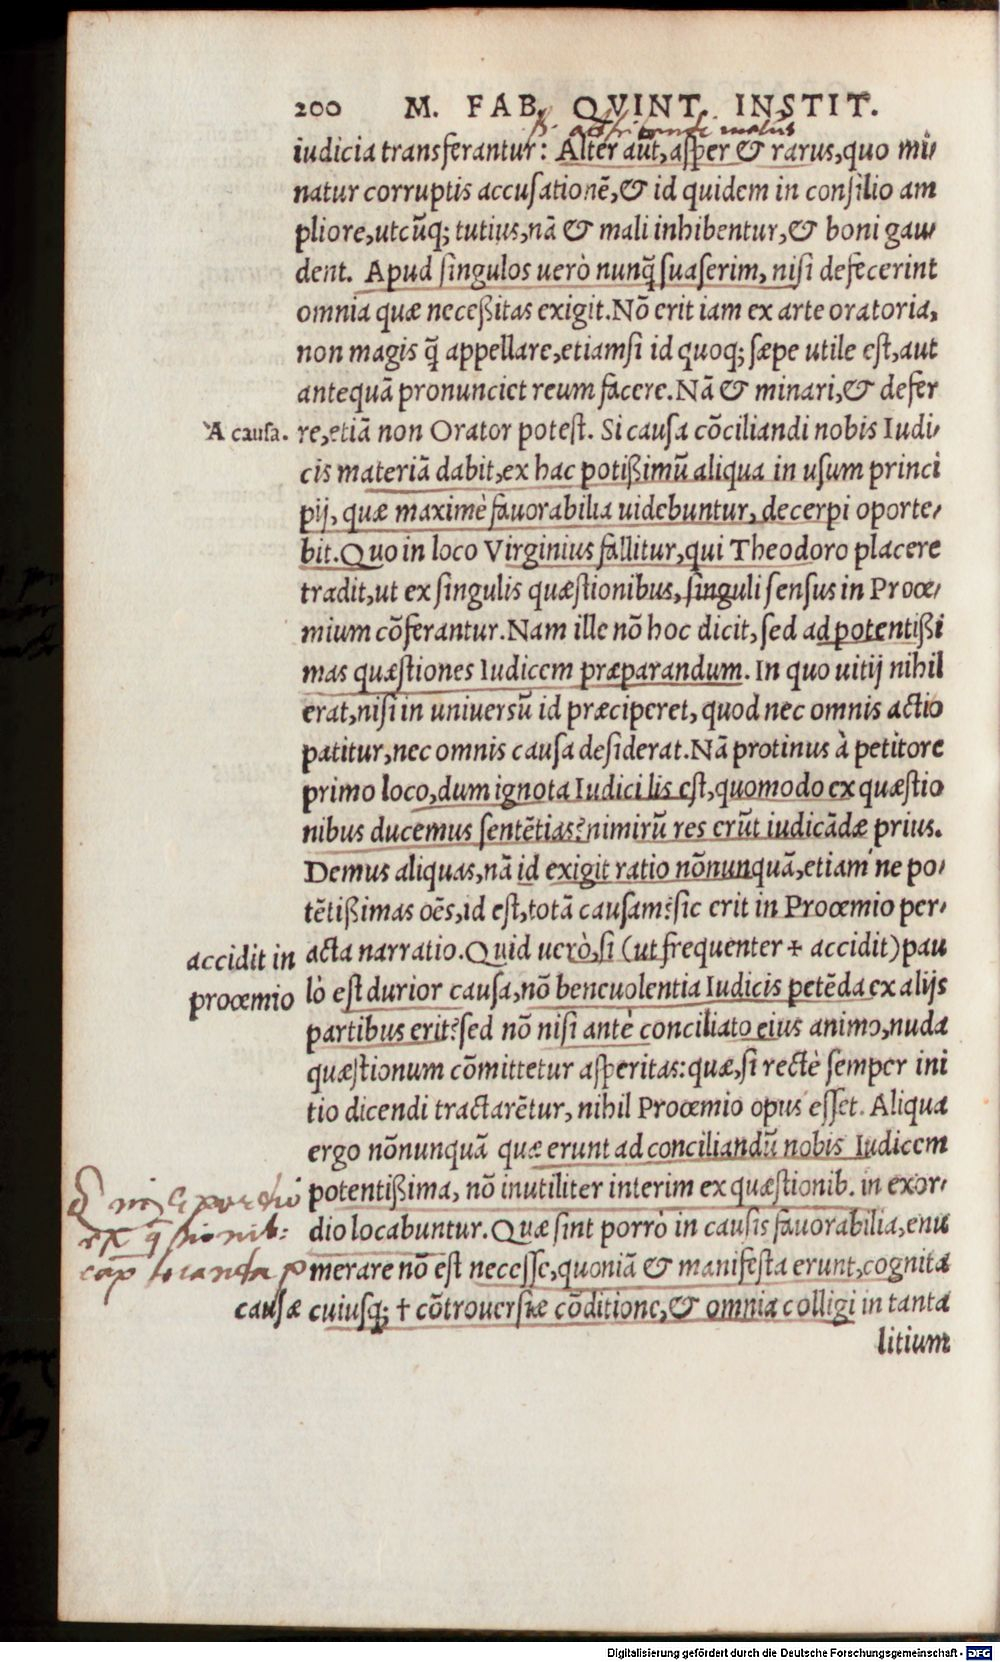 200 M. FAB. QVINT. INSTIT.
iudicia transferantur: Alter aũt, asper & rarus, quo mi-
natur corruptis accusationẽ, & id quidem in consilio am
pliore, utcũq; tutius, nã & mali inhibentur, & boni gau-
dent. Apud singulos uerò nunq̃ suaserim, nisi defecerint
omnia quæ necessitas exigit. Nõ erit iam ex arte oratoria,
non magis q̃ appellare, etiamsi id quoq; sæpe utile est, aut
antequã pronunciet reum facere. Nã & minari, & defer
A causa. re, etiã non Orator potest. Si causa cõciliandi nobis Iudi-
cis materiã dabit, ex hac potissimũ aliqua in usum princi
pij, quæ maximè fauorabilia uidebuntur, decerpi oporte-
bit. Quo in loco Virginius fallitur, qui Theodoro placere
tradit, ut ex singulis quæstionibus, singuli sensus in Proœ-
mium cõferantur. Nam ille nõ hoc dicit, sed ad potentissi
mas quæstiones Iudicem præparandum. In quo uitij nihil
erat, nisi in uniuersũ id præciperet, quod nec omnis actio
patitur, nec omnis causa desiderat. Nã protinus à petitore
primo loco, dum ignota Iudici lis est, quomodo ex quæstio
nibus ducemus sentẽtias? nimirũ res erũt iudicãdæ prius.
Demus aliquas, nã id exigit ratio nõnunquã, etiam ne po-
tẽtissimas oẽs, id est, totã causam? sic erit in Proœmio per-
acta narratio. Quid uerò, si (ut frequenter + accidit) pau
accidit in
proœmio
lò est durior causa, nõ beneuolentia Iudicis petẽda ex alijs
partibus erit? sed nõ nisi antè conciliato eius animo, nuda
quæstionum cõmittetur asperitas: quæ, si rectè semper ini
tio dicendi tractarẽtur, nihil Proœmio opus esset. Aliqua
ergo nõnunquã quæ erunt ad conciliandũ nobis Iudicem
potentissima, nõ inutiliter interim ex quæstionib. in exor-
dio locabuntur. Quæ sint porrò in causis fauorabilia, enu
merare nõ est necesse, quoniã & manifesta erunt, cognita
causæ cuiusq; † cõtrouersiæ cõditione, & omnia colligi in tanta
litium
Digitalisierung gefördert durch die Deutsche Forschungsgemeinschaft - DFG